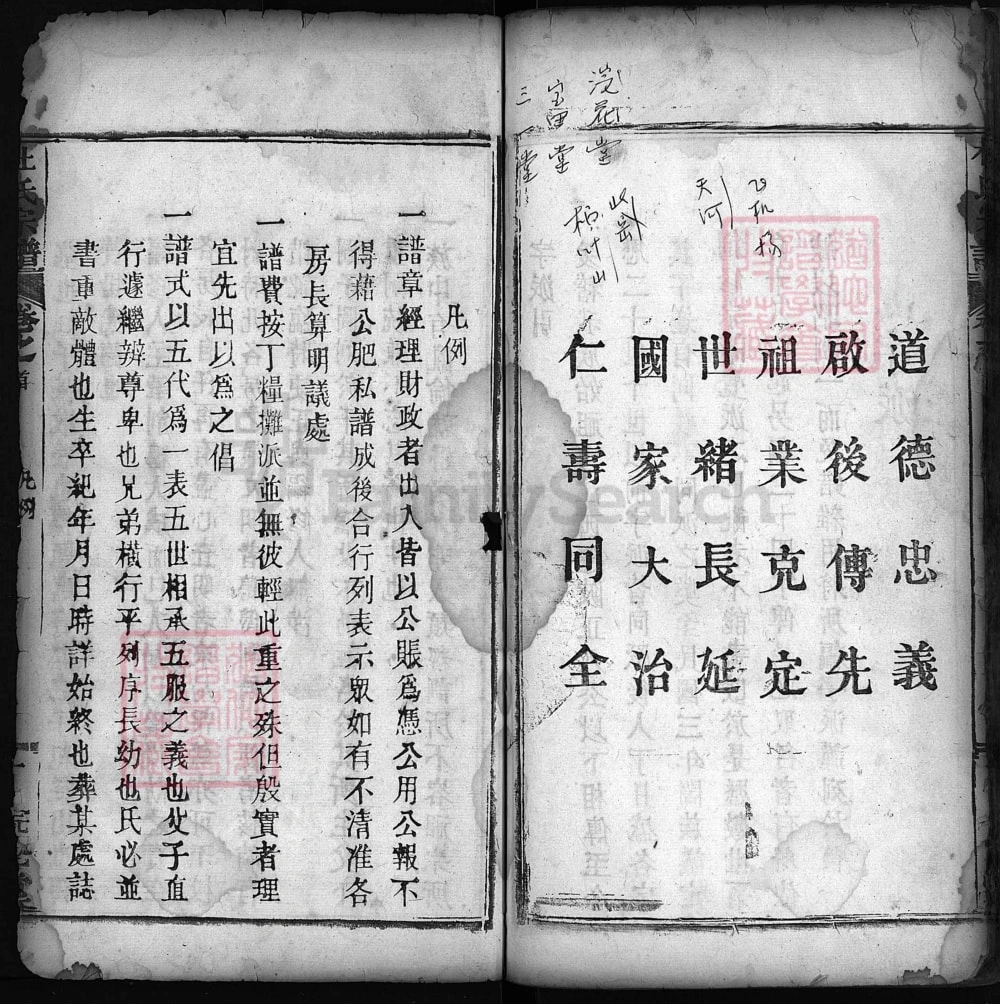 浣花堂
富田堂
三 堂
天河
道德忠義
啟後傳先
祖業克定
世緒長延
國家大治
仁壽同全
凡例
一譜章經理財政者出入皆以公賬爲憑公用公報不
得藉公肥私譜成後合行列表示眾如有不清准各
房長算明議處
一譜費按丁糧攤派並無彼輕此重之殊但殷實者理
宜先出以爲之倡
一譜式以五代爲一表五世相承五服之義也父子直
行遞繼辨尊卑也兄弟橫行平列序長幼也氏必並
書重敵體也生卒紀年月日時詳始終也葬某處誌
杜氏宗譜
卷之首
凡例
FamilySearch